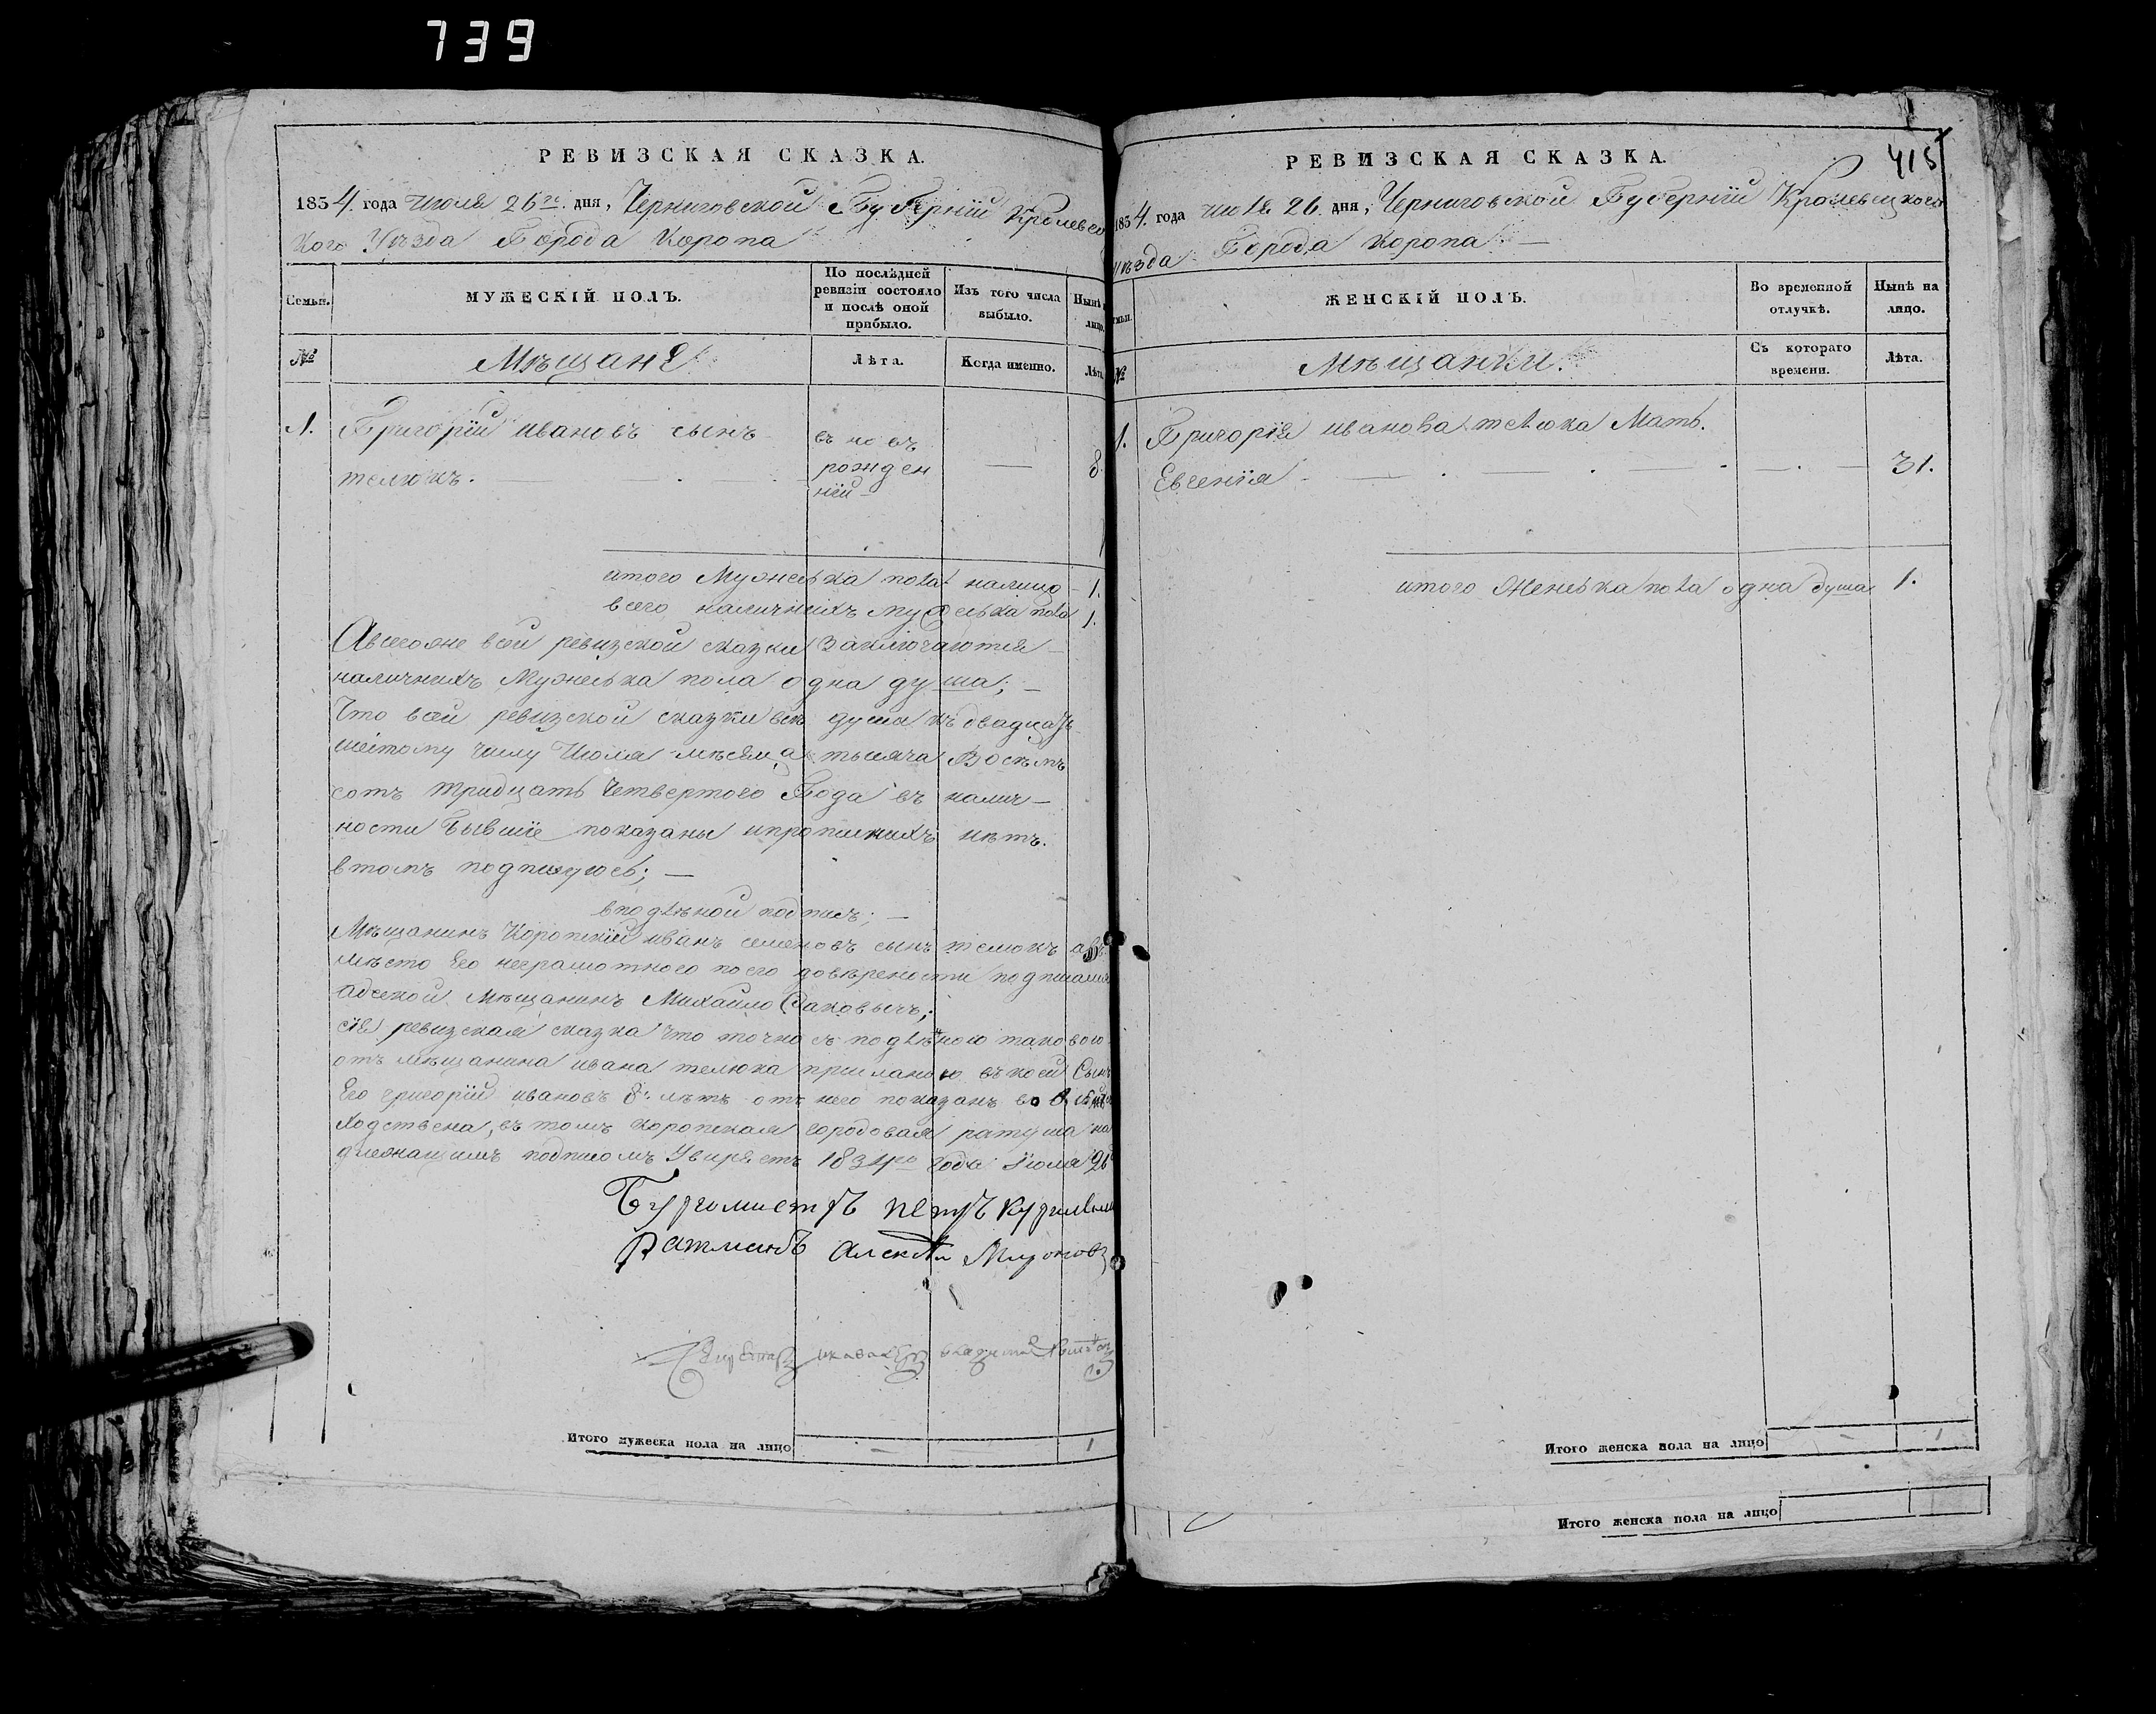 739
РЕВИЗСКАЯ СКАЗКА.
1834. года Июля 26го. дня, Черниговской Губерніи Кролевец
кого Уѣзда Города Коропа
Семьи.
МУЖЕСКІЙ ПОЛЪ.
По послѣдней ревизіи состояло и послѣ оной прибыло.
Изъ того числа выбыло.
Нынѣ лицо.
№
Мѣщане
Лѣта.
Когда именно.
Лѣта
1. Григорій ивановъ сынъ
телюкъ.
въ новъ
рожден
ніи
8
итого Мужеска пола налицо 1.
всего наличнихъ мужеска пола 1.
А всегоже всей ревизской сказки заключаются
наличнихъ Мужеска пола одна душа;
Что всей ревизской сказки всѣ душа къ двадцать
шестому числу Июля мѣсяца тысяча Восемъ
сотъ тридцать Четвертого Года въ налич-
ности бывшіе показаны ипропискихъ нѣтъ.
втомъ подпишуюсь;
вподлѣной подписъ;
Мѣщанинъ Коропскій иванъ семеновъ сынъ телюкъ авъ
мѣсто Его неграмотного поего довѣрености подписался
Мѣщанинъ Михайло
сія ревизская сказка что точна съ подлѣною таковою
отъ мѣщанина ивана телюка присланою въ коей Сынъ
Его григорій ивановъ 8. лѣтъ отъ него показанъ
ходствена, въ томъ коропская городовая ратуша на
длежащимъ подписомъ Увиряетъ 1834го года Іюля 26
Бургомистръ Петръ
Ратманъ Алексѣй Мироновъ
Итого мужеска пола на лицо
1
415
РЕВИЗСКАЯ СКАЗКА.
1834. года июля 26. дня, Черниговской Губерніи Кролевецкого
уѣзда Города Коропа
ЖЕНСКІЙ ПОЛЪ.
Во временной отлучкѣ.
Нынѣ на лицо.
№
Мѣщанки.
Съ котораго времени.
Лѣта.
1. Григорія иванова телюка Мать.
Евгенія
31.
итого Женска пола одна душа 1.
Итого женска пола на лицо
1
Итого женска пола на лицо